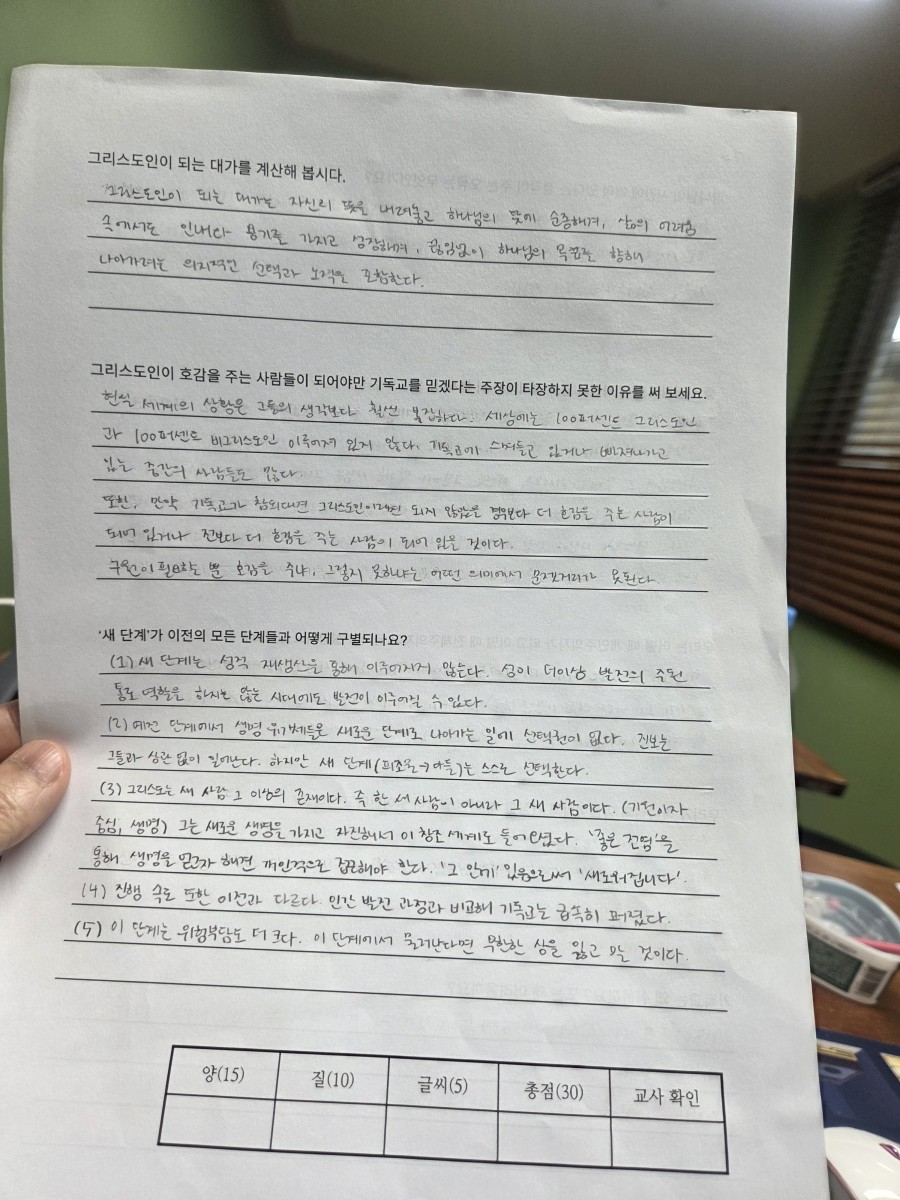 그리스도인이 되는 대가를 계산해 봅시다.
그리스도인이 되는 대가는 자신의 뜻을 내려놓고 하나님의 뜻에 순종해며, 삶의 어려움
속에서도 인내와 용기를 가지고 성장해며, 끊임없이 하나님의 목표를 향해
나아가려는 의지적인 선택과 노력을 포함한다.
그리스도인이 호감을 주는 사람들이 되어야만 기독교를 믿겠다는 주장이 타장하지 못한 이유를 써 보세요.
현실 세계의 상황은 그들의 생각보다 훨씬 복잡하다. 세상에는 100퍼센트 그리스도인
과 100퍼센트 비그리스도인 이루어져 있지 않다. 기독교에 스며들고 있거나 빠져나가고
있는 중간의 사람들도 많다.
또한, 만약 기독교가 참되다면 그리스도인이 되지 않았을 경우보다 더 호감을 주는 사람이
되어 있거나 전보다 더 호감을 주는 사람이 되어 있을 것이다.
구원이 필요할 뿐 호감을 주냐, 그렇지 못하냐는 어떤 의미에서 문젯거리가 못된다
'새 단계'가 이전의 모든 단계들과 어떻게 구별되나요?
(1) 새 단계는 성적 재생산을 통해 이루어지지 않는다. 성이 더이상 발전의 주된
통로 역할을 하지는 않는 시대에도 발전이 이루어질 수 있다.
(2) 예전 단계에서 생명 유기체들은 새로운 단계로 나아가는 일에 선택권이 없다. 진보는
그들과 상관 없이 일어난다. 하지만 새 단계(피조물→아들)는 스스로 선택한다.
(3) 그리스도는 새 사람 그 이상의 존재이다. 즉 한 새 사람이 아니라 그 새 사람이다. (기원이자
중심, 생명) 그는 새로운 생명을 가지고 자진해서 이 창조 세계로 들어 안셨다. '좋은 전염'을
통해 생명을 얻고자 해면 개인적으로 접근해야 한다. '그 안에' 있음으로써 '새로워집니다'.
(4) 진행 속도 또한 이전과 다르다. 인간 발전 과정과 비교해 기독교는 급속히 퍼졌다.
(5) 이 단계는 위험부담도 더 크다. 이 단계에서 물러난다면 무한한 상을 잃고 마는 것이다.
양(15) 질(10) 글씨(5) 총점(30) 교사 확인